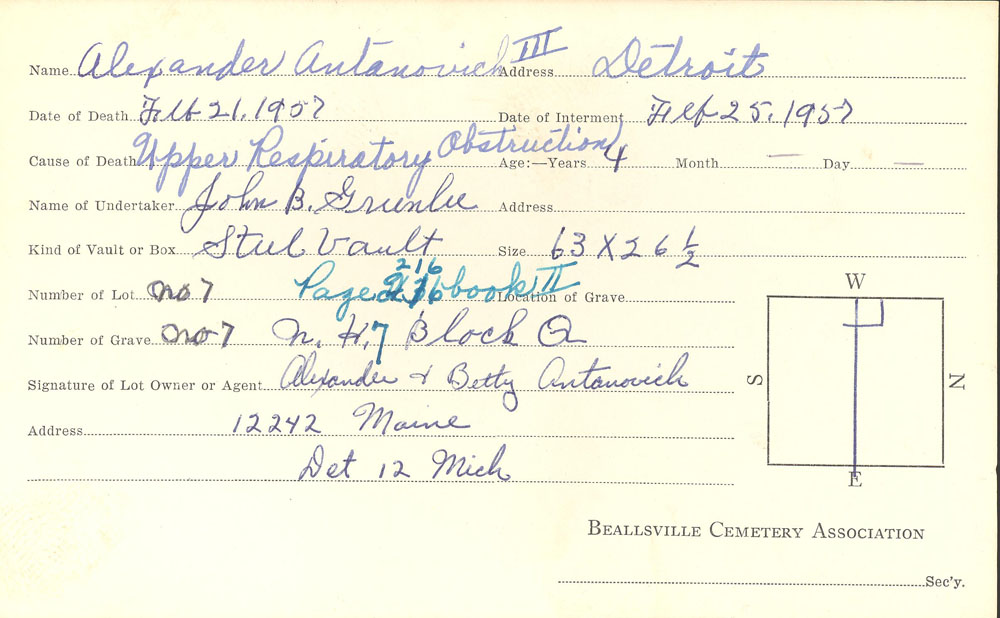 Name Alexander Antanovich III Address Detroit
Date of Death Feb 21, 1957 Date of Interment Feb 25, 1957
Cause of Death Upper Respiratory Obstruction Age:—Years 4 Month — Day —
Name of Undertaker John B. Greenlee Address
Kind of Vault or Box Steel Vault Size 63 X 26 1/2
216
Number of Lot no 7 Page book II Location of Grave
Number of Grave no 7 N. H. 7 Block Q
Signature of Lot Owner or Agent Alexander & Betty Antanovich
Address 12242 Maine
Det 12 Mich
W
S N
E
BEALLSVILLE CEMETERY ASSOCIATION
Sec'y.